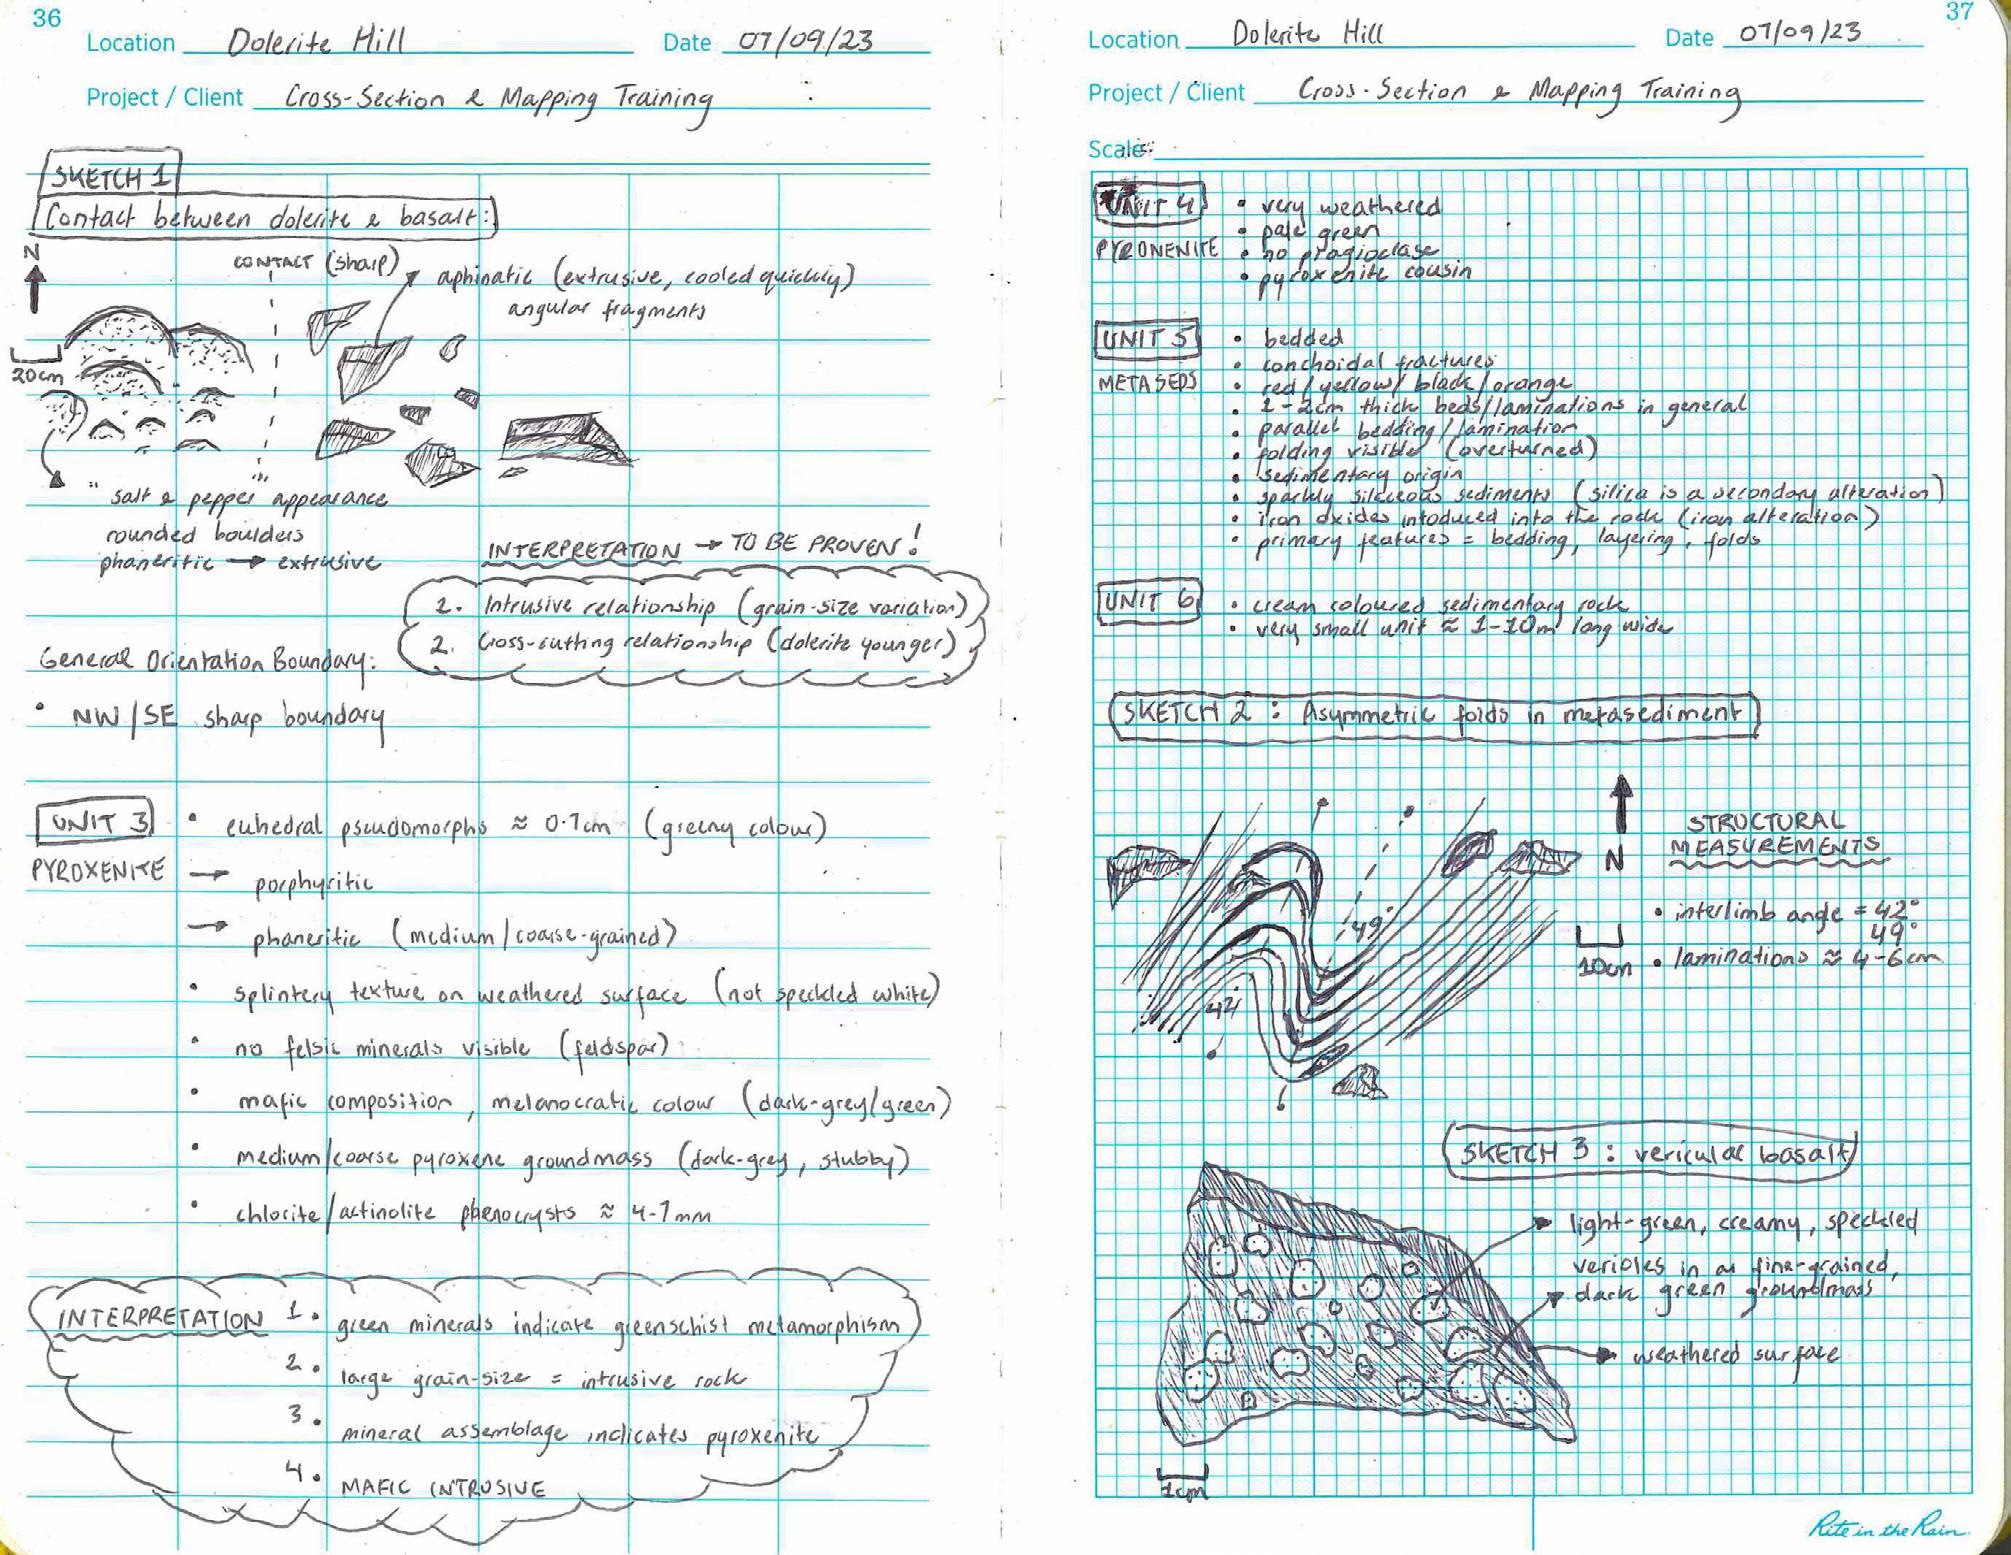 36
Location Dolerite Hill Date 07/09/23
Project / Client Cross-Section & Mapping Training
SKETCH 1
Contact between dolerite & basalt:
N
CONTACT (sharp)
aphinatic (extrusive, cooled quickly)
angular fragments
20cm
"salt & pepper appearance
rounded boulders
phaneritic → extrusive
INTERPRETATION → TO BE PROVEN!
1. Intrusive relationship (grain-size variation)
2. Cross-cutting relationship (dolerite younger)
General Orientation Boundary:
• NW/SE sharp boundary
UNIT 3
PYROXENITE
• euhedral pseudomorphs ≈ 0.7cm (greeny colour)
→ porphyritic
→ phaneritic (medium/coarse-grained)
• splintery texture on weathered surface (not speckled white)
• no felsic minerals visible (feldspar)
• mafic composition, melanocratic colour (dark-grey/green)
• medium/coarse pyroxene groundmass (dark-grey, stubby)
• chlorite/actinolite phenocrysts ≈ 4-7mm
INTERPRETATION 1. green minerals indicate greenschist metamorphism
2. large grain-size = intrusive rock
3. mineral assemblage indicates pyroxenite
4. MAFIC INTRUSIVE
37
Location Dolerite Hill Date 07/09/23
Project / Client Cross-Section & Mapping Training
Scale:
UNIT 4
PYRONENITE
• very weathered
• pale green
• no pragioclase
• pyroxenite cousin
UNIT 5
METASEDS
• bedded
• conchoidal fractures
• red/yellow/black/orange
• 1-2cm thick beds/laminations in general
• parallel bedding/lamination
• folding visible (overturned)
• sedimentary origin
• sparkly siliceous sediments (silica is a secondary alteration)
• iron oxides intoduced into the rock (iron alteration)
• primary features = bedding, layering, folds
UNIT 6
• cream coloured sedimentary rock
• very small unit ≈ 1-10m long wide
SKETCH 2: Asymmetric folds in metasediment
N
STRUCTURAL
MEASUREMENTS
• interlimb angle = 42°
49°
• laminations ≈ 4-6cm
10cm
49°
42°
SKETCH 3: vericular basalt
light-green, creamy, speckled
verioles in a fine-grained,
dark green groundmass
weathered surface
1cm
Rite in the Rain